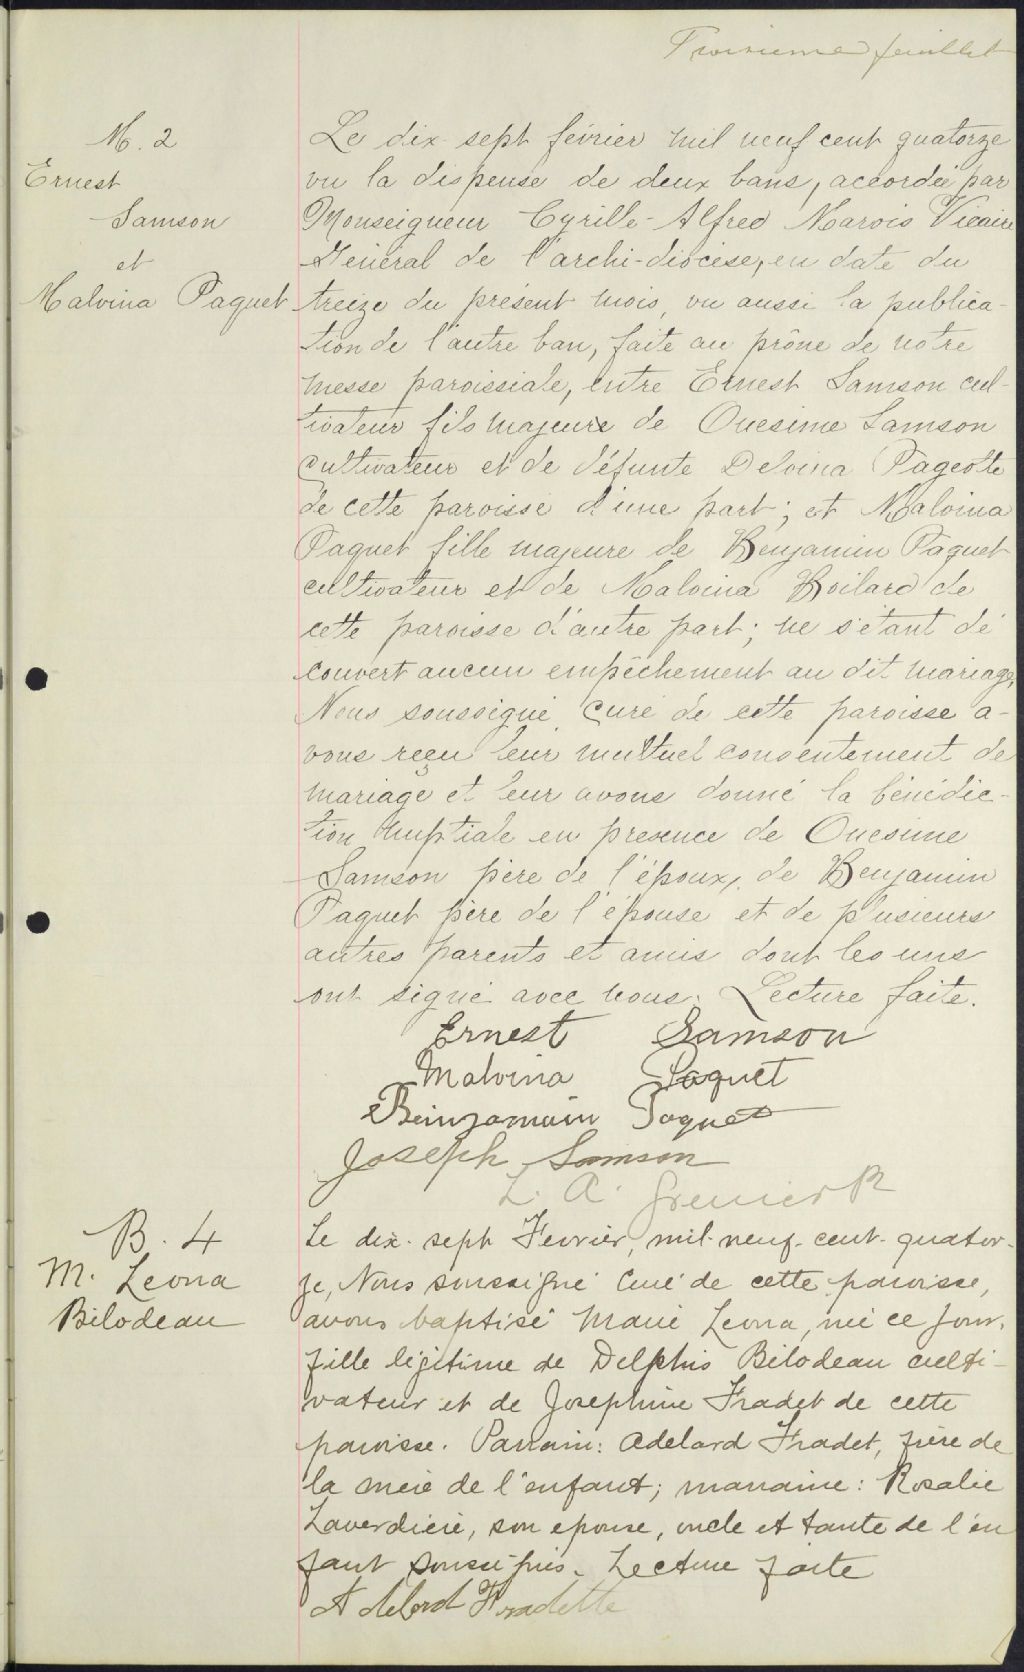 Troisième feuillet
M. 2
Ernest
Samson
et
Malvina Paquet
Le dix-sept février mil neuf cent quatorze
vu la dispense de deux bans, accordée par
Monseigneur Cyrille-Alfred Marois Vicaire
Général de l'archi-diocèse, en date du
treize du présent mois, vu aussi la publica-
tion de l'autre ban, faite au prône de notre
messe paroissiale, entre Ernest Samson cul-
tivateur fils majeure de Onesime Samson
cultivateur et de défunte Delvina Pageotte
de cette paroisse d'une part; et Malvina
Paquet fille majeure de Benjamin Paquet
cultivateur et de Malvina Boilard de
cette paroisse d'autre part; ne s'étant dé
couvert aucun empêchement au dit mariage,
Nous soussigné, curé de cette paroisse a-
vons reçu leur muttuel consentement de
mariage et leur avons donné la bénédic-
tion nuptiale en presence de Onesime
Samson père de l'époux, de Benjamin
Paquet père de l'épouse et de plusieurs
autres parents et amis dont les uns
ont signé avec nous. Lecture faite.
Ernest Samson
Malvina Paquet
Beinjamain Paquet
Joseph Samson
L. A. Grenier
B. 4
M. Leona
Bilodeau
Le dix-sept Fevrier, mil-neuf-cent-quator-
ze, Nous soussigné Curé de cette paroisse,
avons baptisé Marie Leona, née ce jour,
fille légitime de Delphis Bilodeau culti-
vateur et de Josephine Fradet de cette
paroisse. Parrain: Adelard Fradet, frère de
la mère de l'enfant; marraine: Rosalie
Laverdière, son epouse, oncle et tante de l'en
fant soussignés. Lecture faite
Adelard Fradette